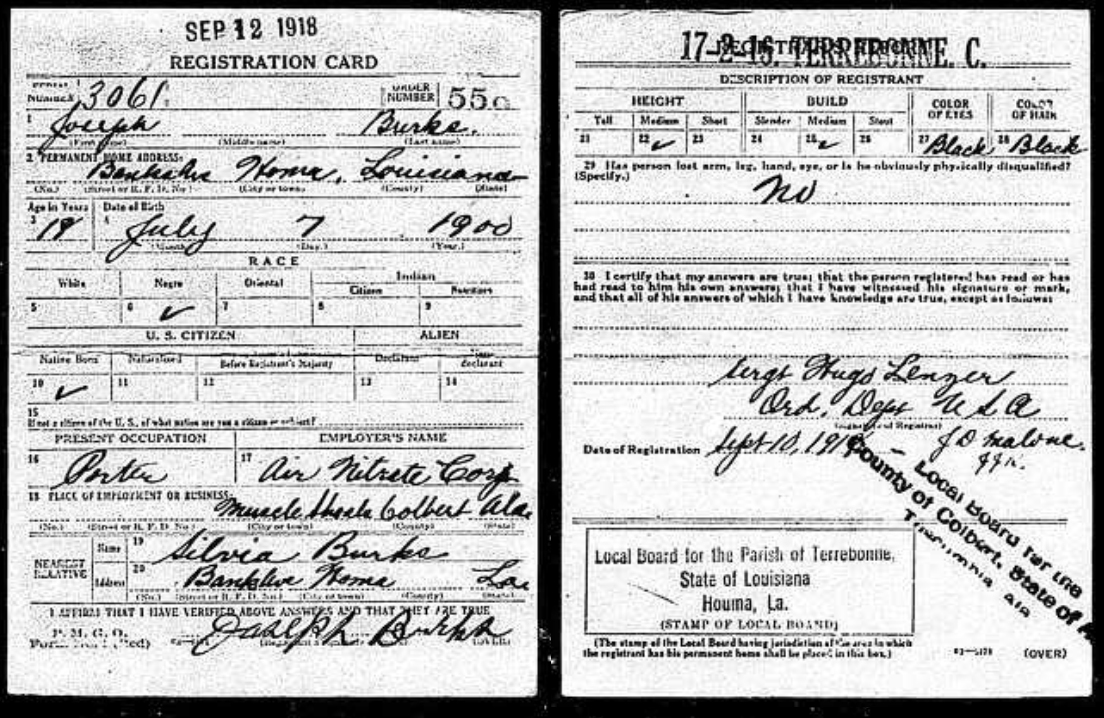 SEP 12 1918
REGISTRATION CARD
SERIAL NUMBER 3061
ORDER NUMBER 550
1 Joseph Burks.
(First name) (Middle name) (Last name)
2 PERMANENT HOME ADDRESS:
Homa, Louisiana
(No.) (Street or R. F. D. No.) (City or town) (County) (State)
Age in Years Date of Birth
3 18 4 July 7 1900
(Month.) (Day.) (Year.)
RACE
White Negro Oriental Indian
Citizen
5 6 ✓ 7 8 9
U. S. CITIZEN ALIEN
Native Born Naturalized Before Registrant's Majority Declarant
10 ✓ 11 12 13 14
15
If not a citizen of the U. S., of what nation are you a citizen or subject?
PRESENT OCCUPATION EMPLOYER'S NAME
16 Porter 17 Air Nitrate Corp
18 PLACE OF EMPLOYMENT OR BUSINESS:
Muscle Shoals Colbert Ala
(No.) (Street or R. F. D. No.) (City or town) (County) (State)
NEAREST RELATIVE
Name 19 Silvia Burks
Address 20 Homa La
(No.) (Street or R. F. D. No.) (City or town) (County) (State)
I AFFIRM THAT I HAVE VERIFIED ABOVE ANSWERS AND THAT THEY ARE TRUE
P. M. G. O.
Form No. 1 (Red)
Joseph Burks
(OVER)
17-2-16. TERREBONNE. C.
REGISTRAR'S REPORT
DESCRIPTION OF REGISTRANT
HEIGHT BUILD COLOR OF EYES COLOR OF HAIR
Tall Medium Short Slender Medium Stout
21 22 ✓ 23 24 25 ✓ 26 27 Black 28 Black
29 Has person lost arm, leg, hand, eye, or is he obviously physically disqualified?
(Specify.)
No
30 I certify that my answers are true; that the person registered has read or has
had read to him his own answers; that I have witnessed his signature or mark,
and that all of his answers of which I have knowledge are true, except as follows:
Sergt Hugo Lenzer
Ord. Dept U S A
(Signature of Registrar)
Date of Registration Sept 10, 1918 J D Malone.
Local Board for the
County of Colbert, State of
Tuscumbia
Ala
Local Board for the Parish of Terrebonne,
State of Louisiana
Houma, La.
(STAMP OF LOCAL BOARD)
(The stamp of the Local Board having jurisdiction of the area in which
the registrant has his permanent home shall be placed in this box.)
(OVER)